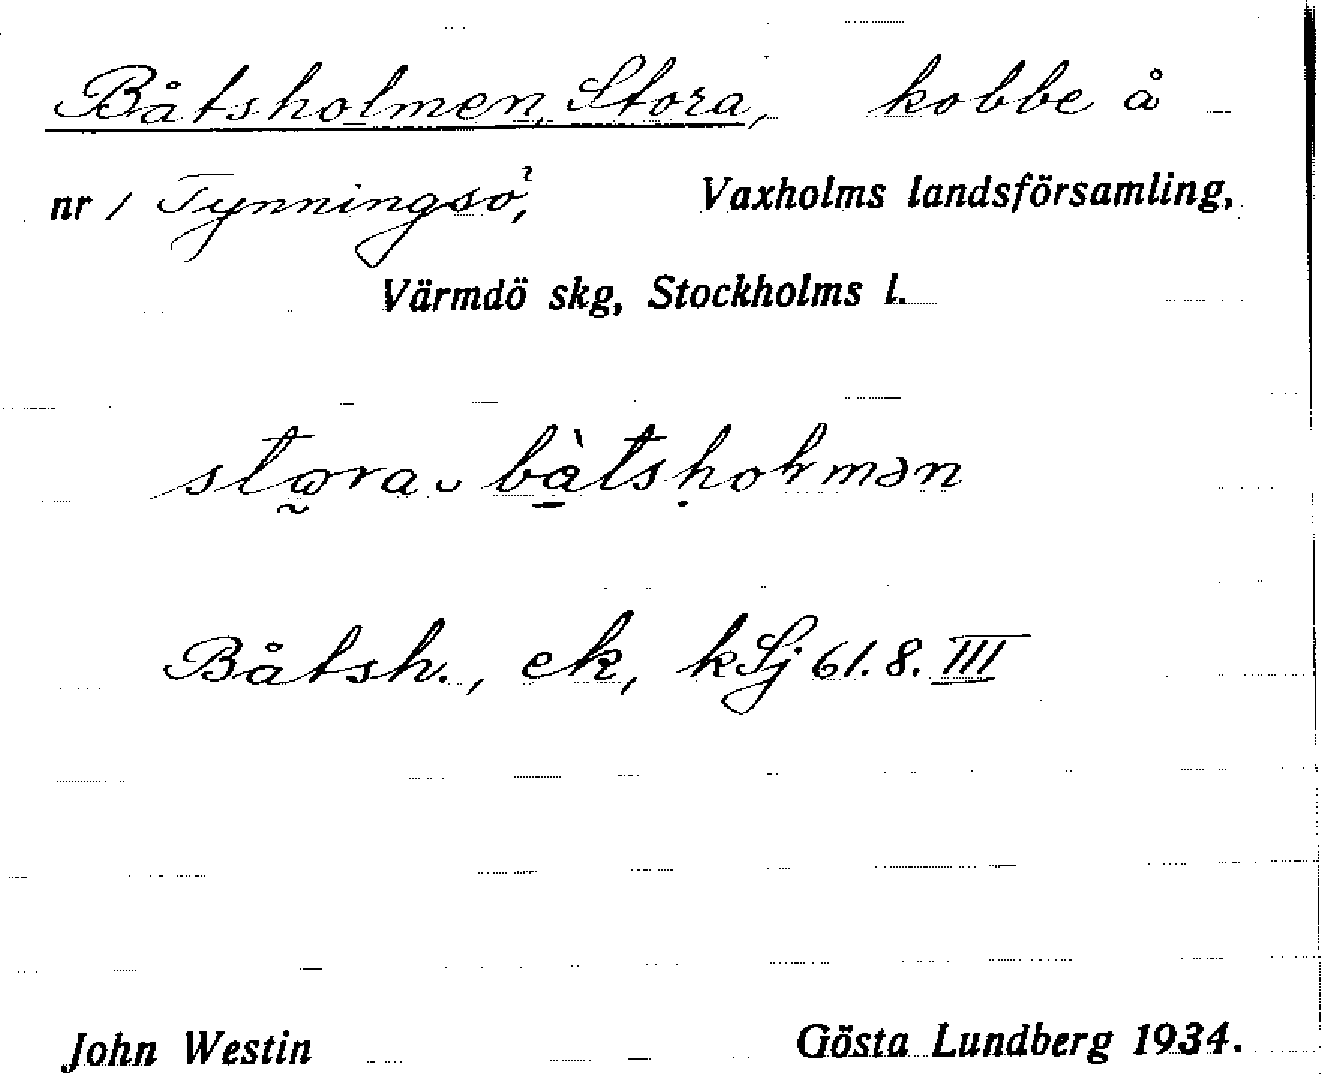 Båtsholmen, Stora, kobbe å
nr 1 Tynningsö, Vaxholms landsförsamling,
Värmdö skg, Stockholms l.
stωra ᴗ bàtsholmən
Båtsh., ek, kSj 61.8.III
John Westin Gösta Lundberg 1934.